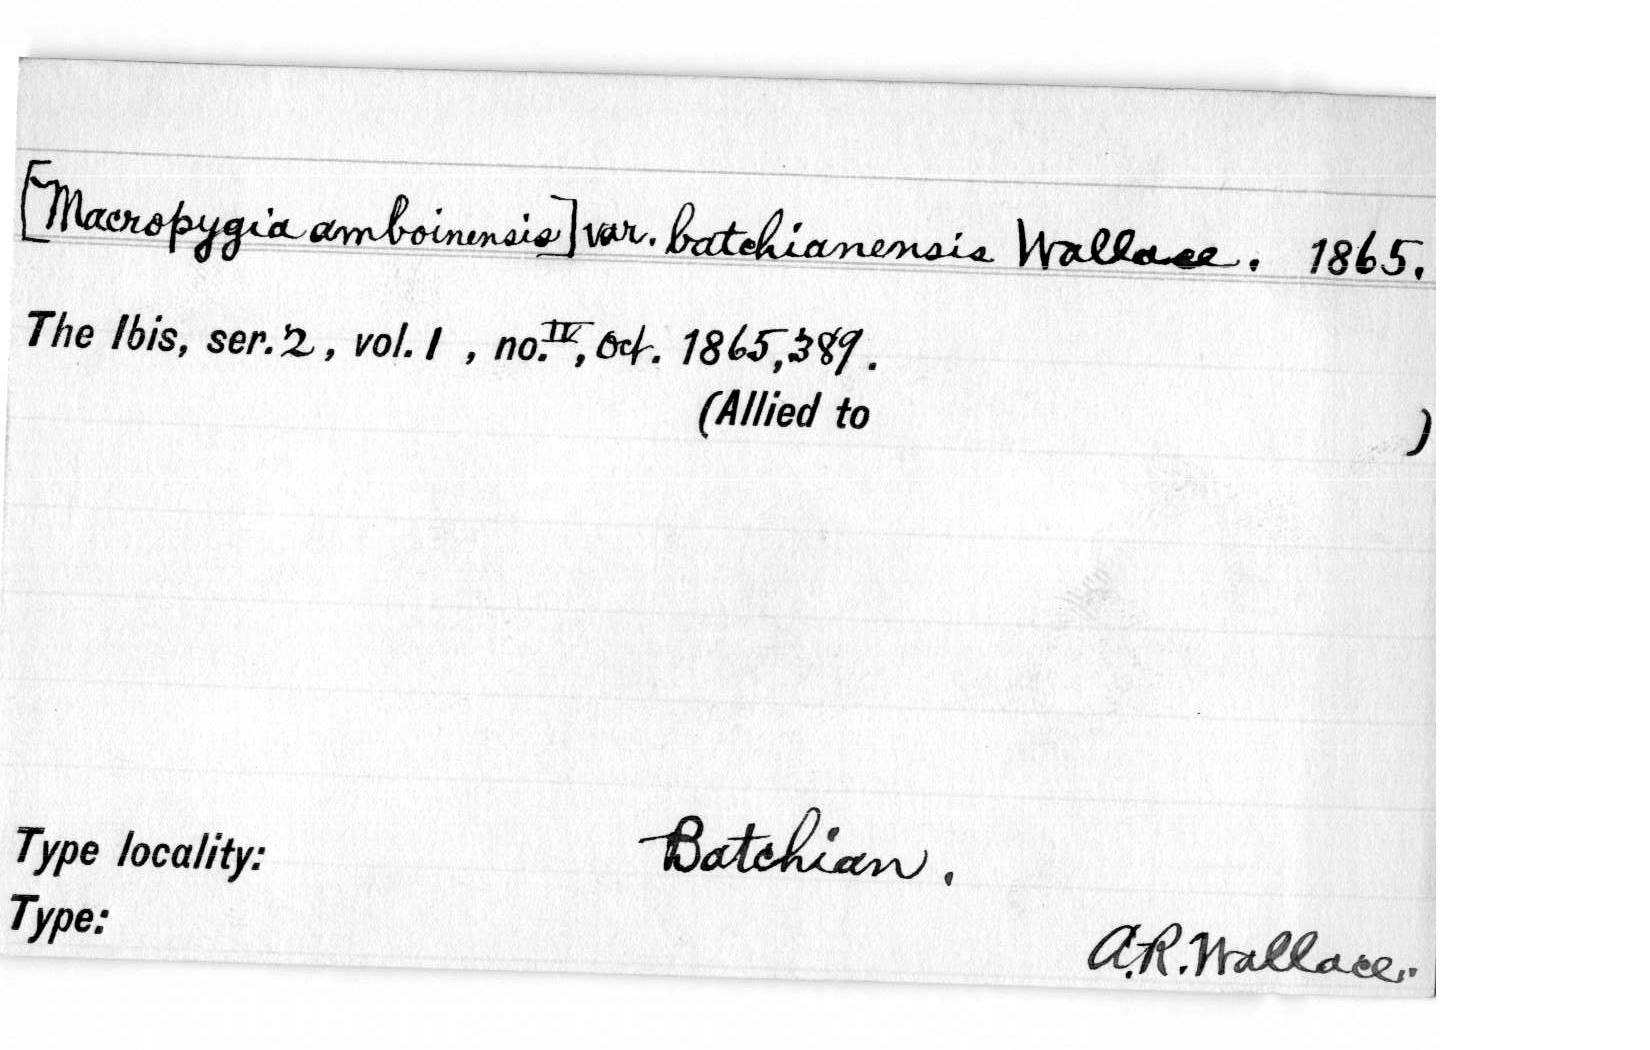 [Macropygia amboinensis] var. batchianensis Wallace. 1865.
The Ibis, ser. 2, vol. 1, no. IV, Oct. 1865, 389.
(Allied to )
Type locality: Batchian.
Type:
A.R. Wallace.